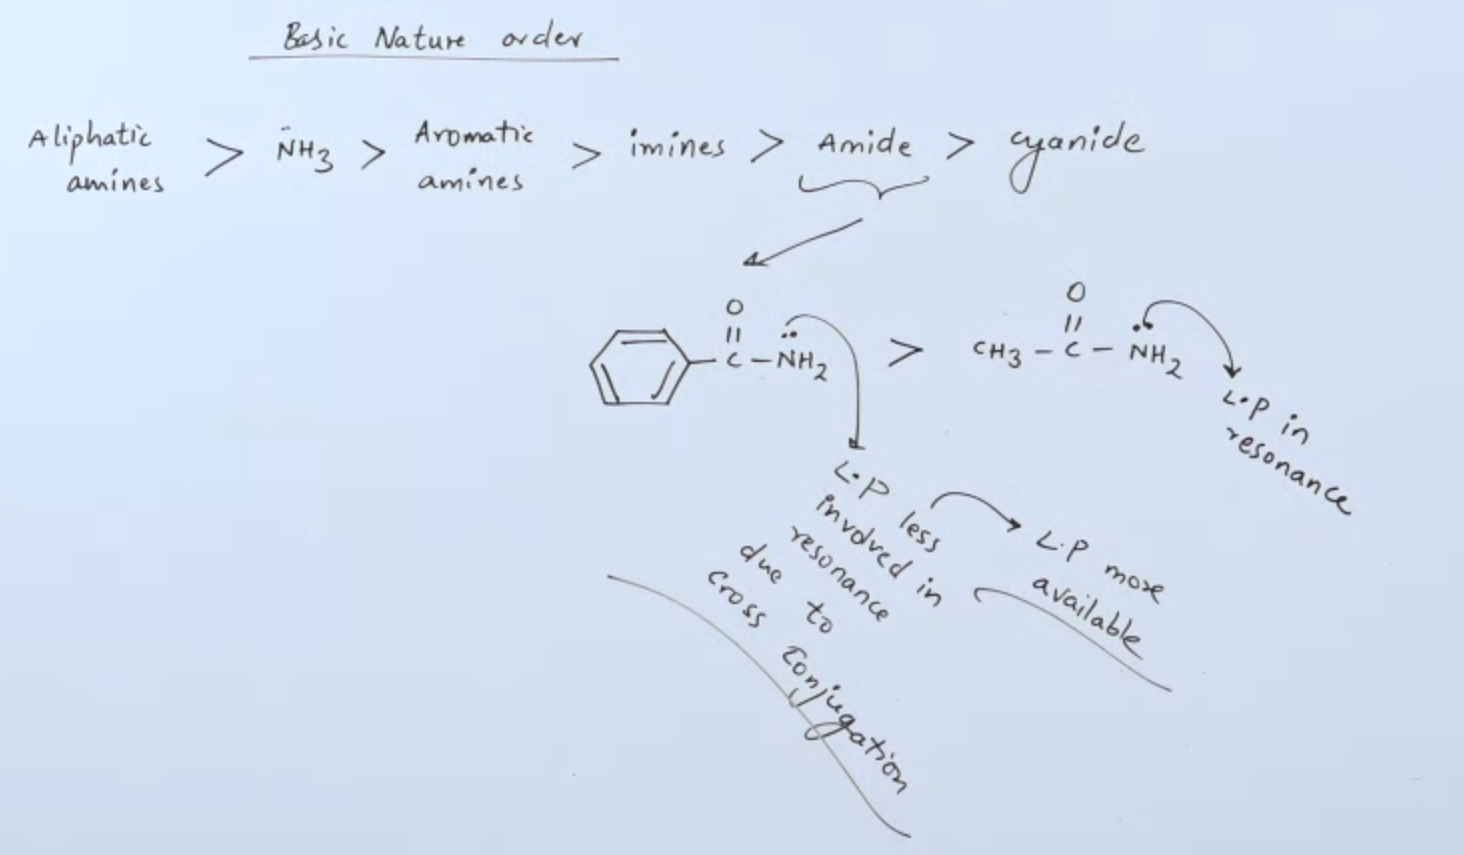 Basic Nature order
Aliphatic amines > N̈H3 > Aromatic amines > imines > Amide > cyanide
O
||
C - N̈H2 > CH3 - C - N̈H2
O
||
L.P in
resonance
L.P less
involved in
resonance
due to
cross conjugation
L.P more
available